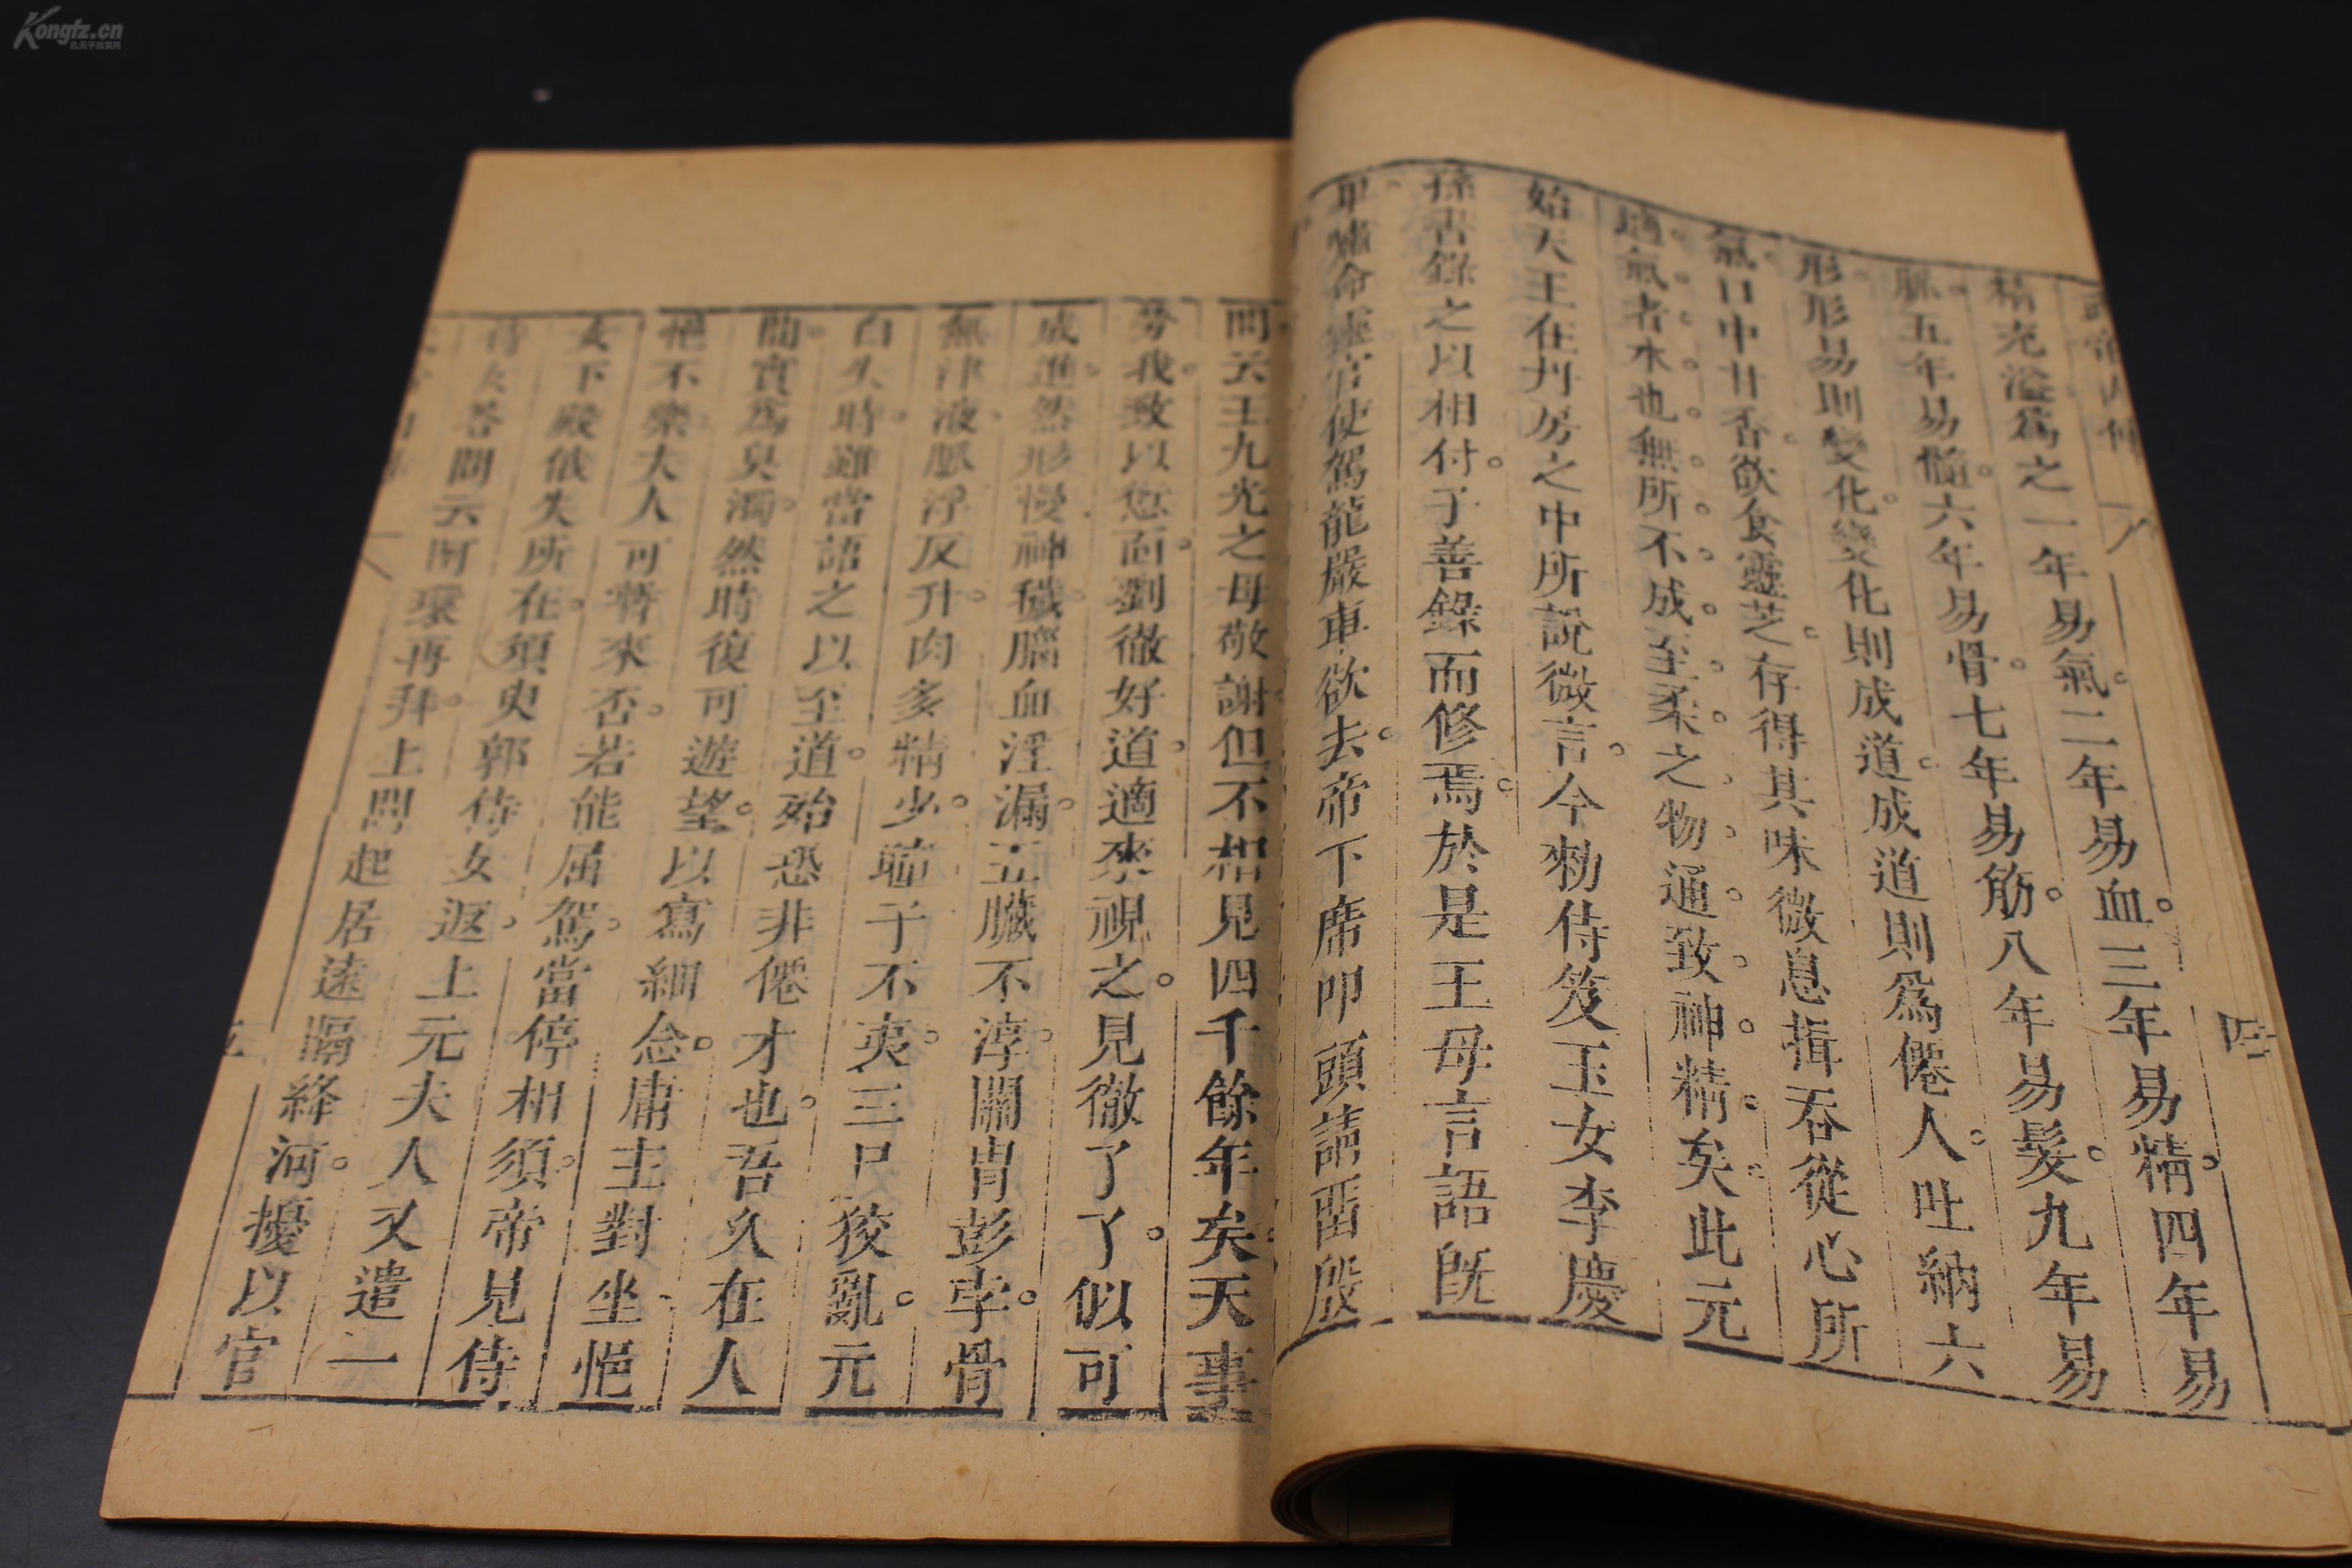 Kongfz.cn
孔夫子拍卖网
四
精充溢爲之一年易氣。二年易血。三年易精。四年易
脈。五年易髓。六年易骨。七年易筋。八年易髮。九年易
形。形易則變化。變化則成道。成道則爲僊人。吐納六
氣。口中甘香。欲食靈芝。存得其味。微息揖吞。從心所
適。氣者水也。無所不成。至柔之物。通致神精矣。此元
始天王在丹房之中所說微言。今勑侍笈玉女李慶
孫書錄之以相付。子善錄而修焉。於是王母言語旣
畢。嘯命靈官使駕龍嚴車欲去。帝下席叩頭請畱殷
問云王九光之母敬謝但不相見四千餘年矣。天事
勞我。致以愆面。劉徹好道。適來視之。見徹了了。似可
成進。然形慢神穢。腦血淫漏。五臟不淳。關胃彭孛。骨
無津液。脈浮反升。肉多精少。瞳子不夷。三尸狡亂。元
白失時。雖當語之以至道。殆恐非僊才也。吾久在人
間。實爲臭濁。然時復可遊望。以寫細念。庸主對坐。悒
悒不樂。夫人可暫來否。若能屈駕。當停相須。帝見侍
女下殿。俄失所在。須臾郭侍女返。上元夫人又遣一
侍女答問云。阿環再拜。上問起居。遠隔絳河。擾以官
五